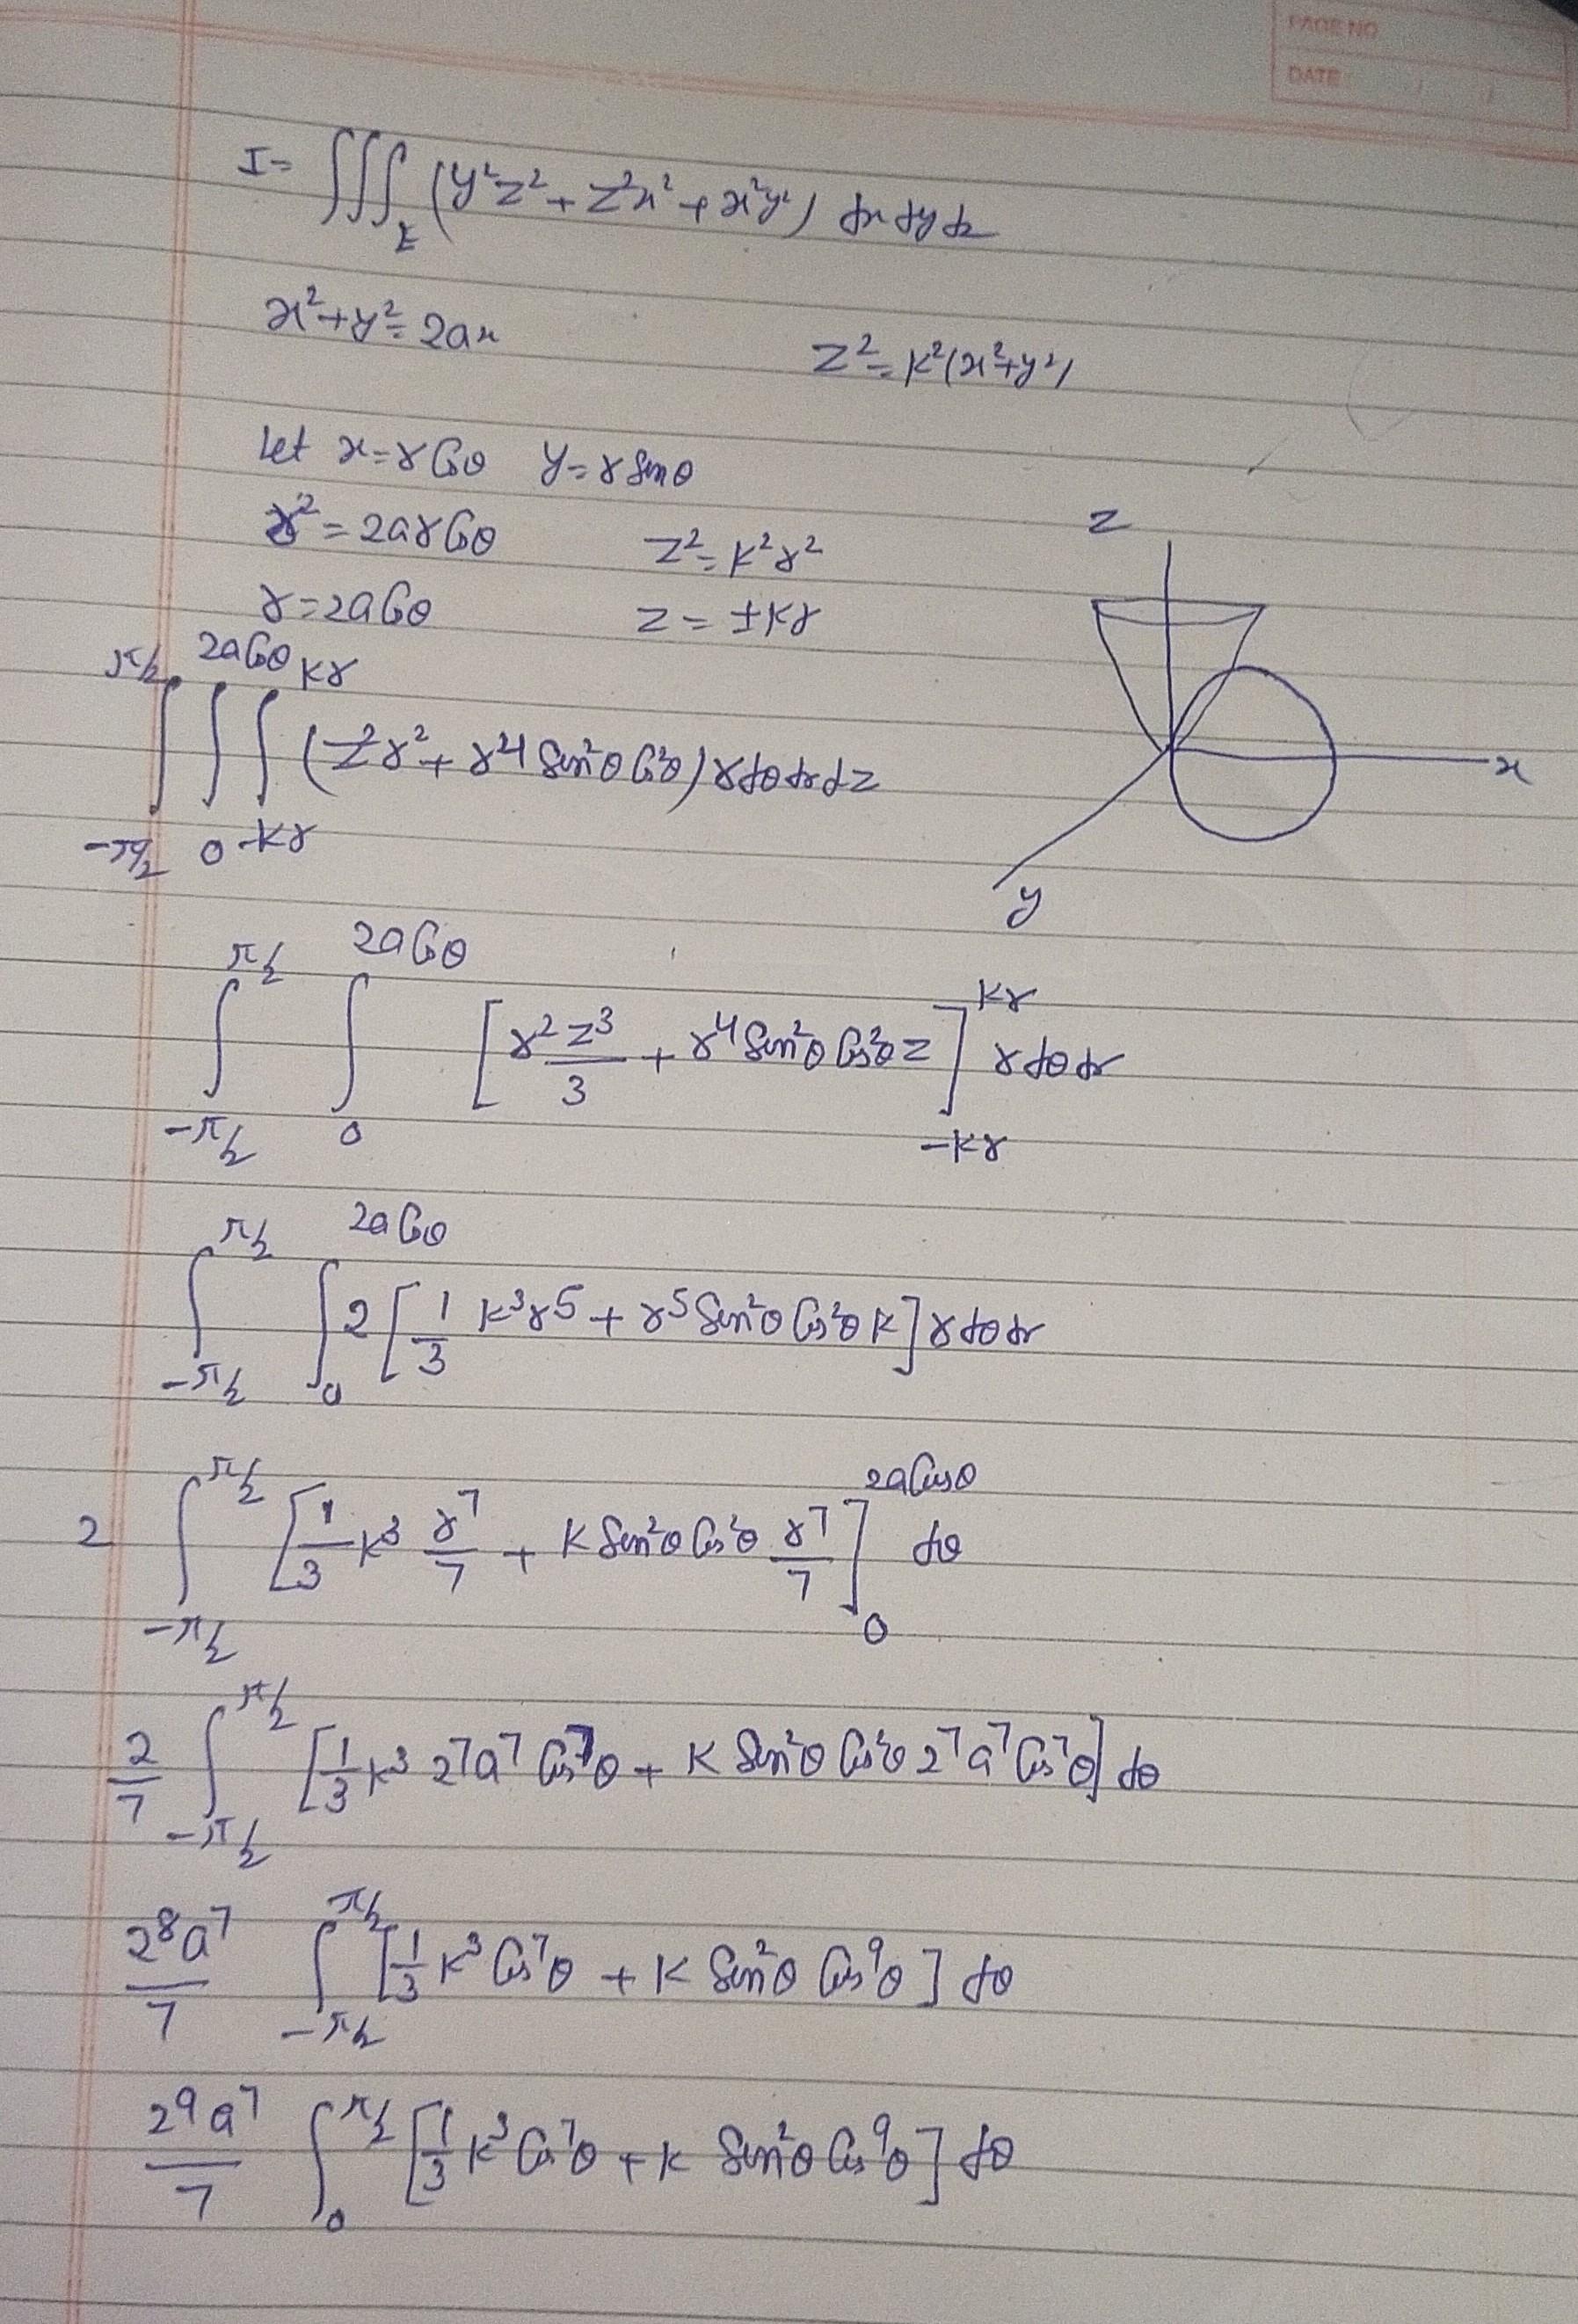 PAGE NO
DATE
I = ∭_E (y²z² + z²x² + x²y²) dx dy dz
x²+y² = 2ax
z² = k²(x²+y²)
Let x = r Cosθ y = r Sinθ
r² = 2ar Cosθ z² = k²r²
r = 2a Cosθ z = ±kr
z
x
y
∫_{-π/2}^{π/2} ∫_0^{2aCosθ} ∫_{-kr}^{kr} (z²r² + r⁴ Sin²θ Cos²θ) r dθ dr dz
∫_{-π/2}^{π/2} ∫_0^{2aCosθ} [r² z³/3 + r⁴ Sin²θ Cos²θ z]_{-kr}^{kr} r dθ dr
∫_{-π/2}^{π/2} ∫_0^{2aCosθ} 2[1/3 k³r⁵ + r⁵ Sin²θ Cos²θ k] r dθ dr
2 ∫_{-π/2}^{π/2} [1/3 k³ r⁷/7 + k Sin²θ Cos²θ r⁷/7]_0^{2aCosθ} dθ
2/7 ∫_{-π/2}^{π/2} [1/3 k³ 2⁷a⁷ Cos⁷θ + k Sin²θ Cos²θ 2⁷ a⁷ Cos⁷θ] dθ
2⁸a⁷/7 ∫_{-π/2}^{π/2} [1/3 k³ Cos⁷θ + k Sin²θ Cos⁹θ] dθ
2⁹a⁷/7 ∫_0^{π/2} [1/3 k³ Cos⁷θ + k Sin²θ Cos⁹θ] dθ